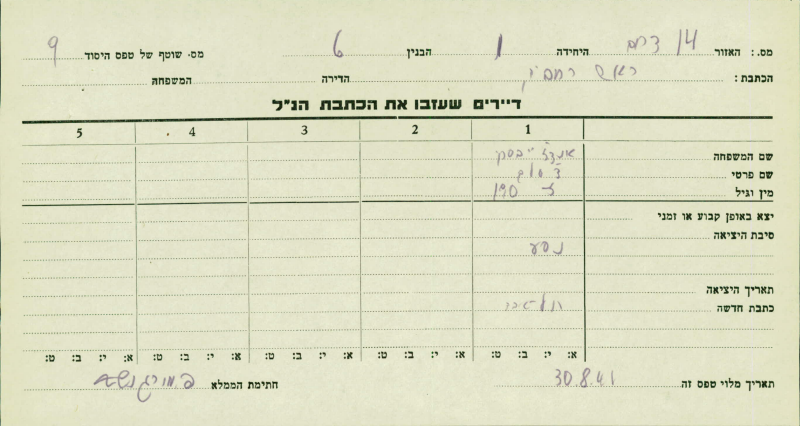 מס. : האזור 14 דרום היחידה 1 הבנין 6 מס׳ שוטף של טפס היסוד 9
הכתבת : ראש הדירה המשפחה
דיירים שעזבו את הכתבת הנ״ל
1 2 3 4 5
שם המשפחה
שם פרטי
מין וגיל ז 1905
יצא באופן קבוע או זמני
סיבת היציאה
נסע
תאריך היציאה
כתבת חדשה
א: י: ב: ט: א: י: ב: ט: א: י: ב: ט: א: י: ב: ט: א: י: ב: ט:
תאריך מלוי טפס זה 30.8.41 חתימת הממלא